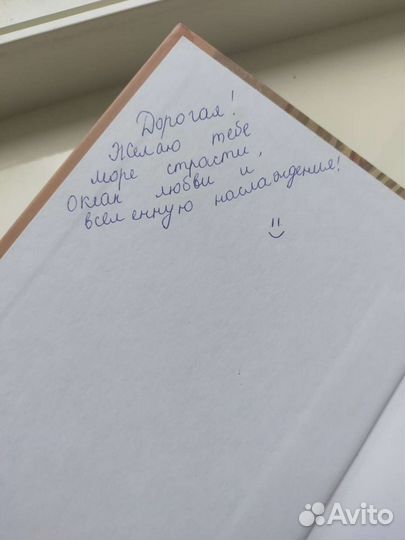 Дорогая!
Желаю тебе
море страсти,
океан любви и,
вселенную наслаждения!
Avito